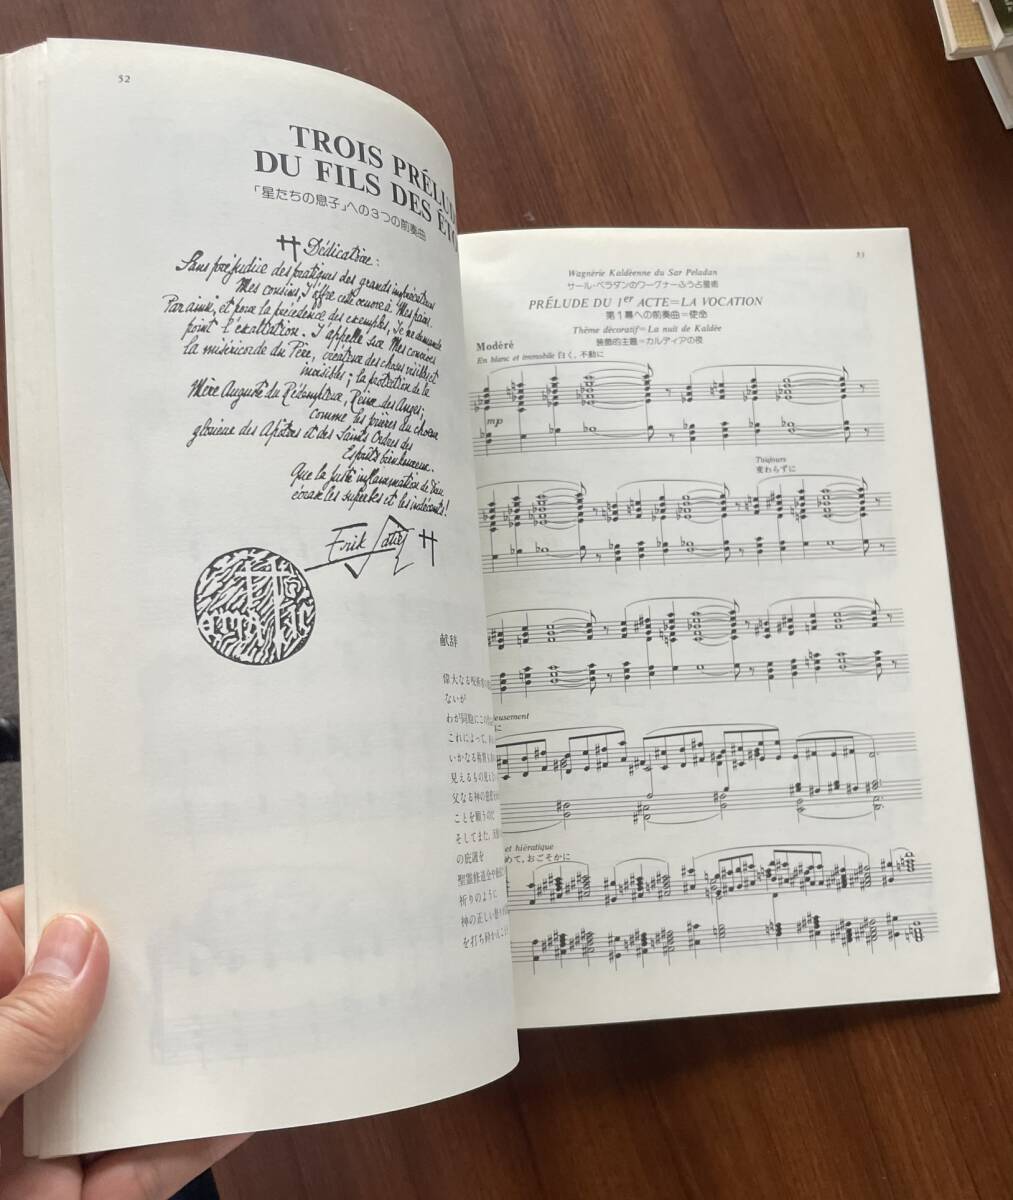 52
TROIS PRÉLUD
DU FILS DES ÉTO
「星たちの息子」への3つの前奏曲
Dédicatoire:
Sans préjudice des pratiques des grands imprécateurs
Mes cousins, J'offre cette œuvre à Mes pairs.
Par ainsi, et pour la précédence des exemples, Je ne demande
point l'exaltation. J'appelle sur Mes convives
la miséricorde du Père, créateur des choses visibles et
invisibles; la protection de la
Mère Auguste du Rédempteur, Reine des Anges;
comme les prières du chœur
glorieux des Apôtres et des Saints Ordres des
Esprits bienheureux.
Que la juste inflammation de Dieu
écrase les superbes et les indécents!
Erik Satie
献辞
偉大なる呪術
ないが
わが同胞にこの
これによって,
いかなる称賛も
見えるもの見え
父なる神の慈悲
ことを願うのだ
そしてまた,
の庇護を
聖霊修道会や
祈りのように
神の正しい怒り
を打ち砕かんこと
53
Wagnérie Kaldéenne du Sar Peladan
サール・ペラダンのワーグナーふう占星術
PRÉLUDE DU 1er ACTE=LA VOCATION
第1幕への前奏曲=使命
Thème décoratif=La nuit de Kaldée
装飾的主題=カルディアの夜
Modéré
En blanc et immobile 白く,不動に
mp
Toujours
変わらずに
eusement
に
et hiératique
めて,おごそかに